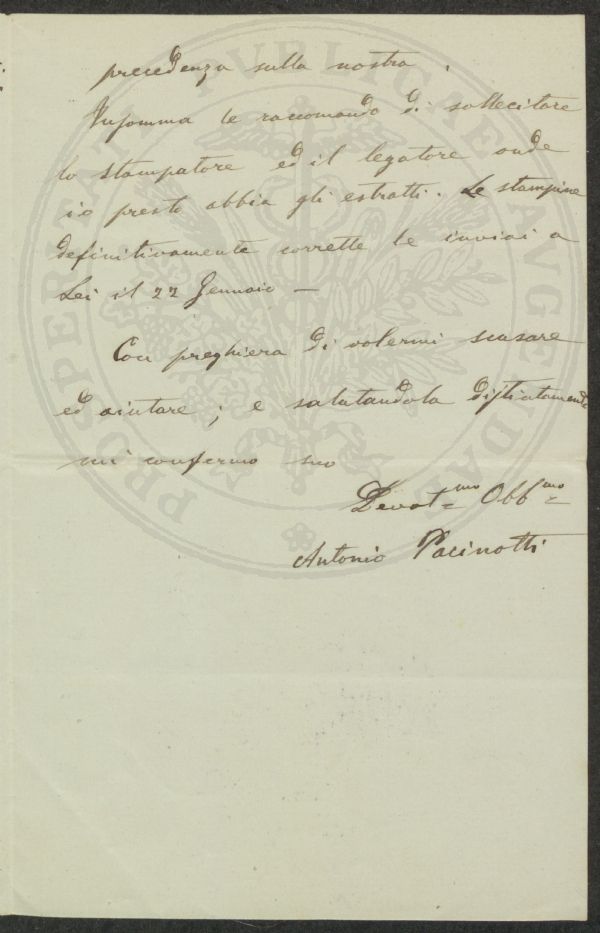 precedenza sulla nostra.
Insomma le raccomando di sollecitare
lo stampatore ed il legatore onde
io presto abbia gli estratti. Le stampine
definitivamente corrette le inviai a
Lei il 22 Gennaio —
Con preghiera di volermi scusare
ed aiutare; e salutandola distintamente
mi confermo suo
Devotmo Obbmo
Antonio Pacinotti
PROSPERITATI PVBLICAE AVGENDAE